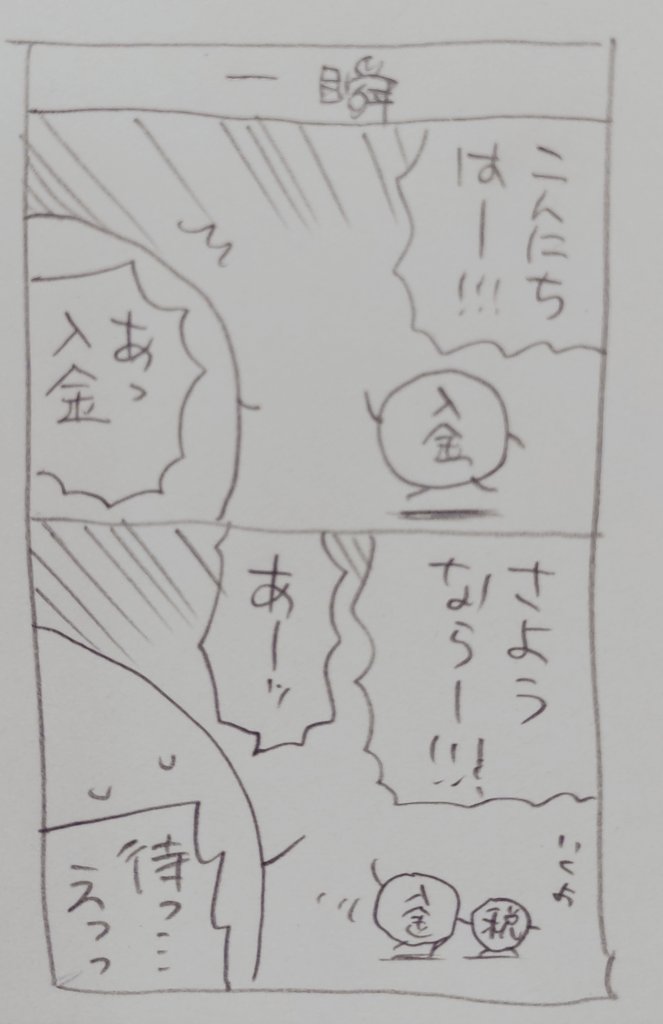 一瞬
こんにち
はー!!!
入金
あっ
入金
さよう
ならー!!!
あーッ
いくよ
税
入金
待っ…
えっっ